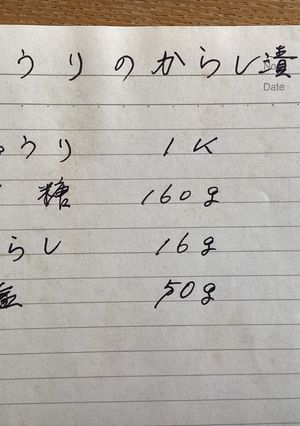 うりのからし漬
No.
Date
ゅうり 1K
糖 160g
らし 16g
塩 50g